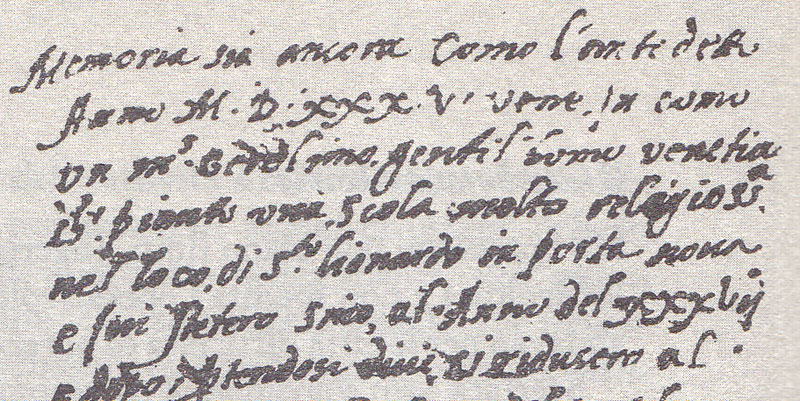 Memoria sia ancora Como l'antedetto
Anno M. D. XXX. V. vene in como
un m.r Gerolimo gentil' homo venetia
pianto una scola molto religiosa
nel loco di S.to lionardo in porta nova
e qui stetero Sino al Anno del XXXVij
e dopo si ridusero al